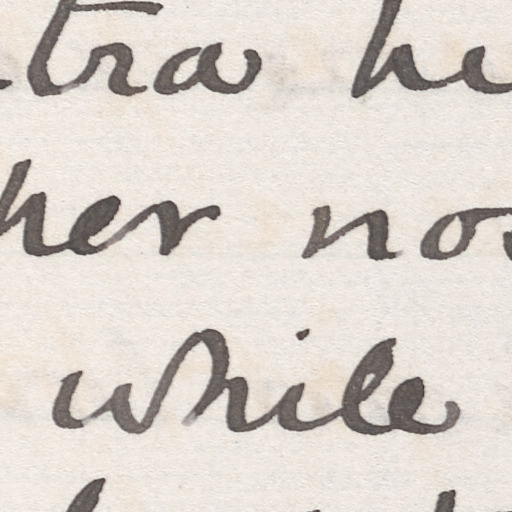 tra he
her nos
while